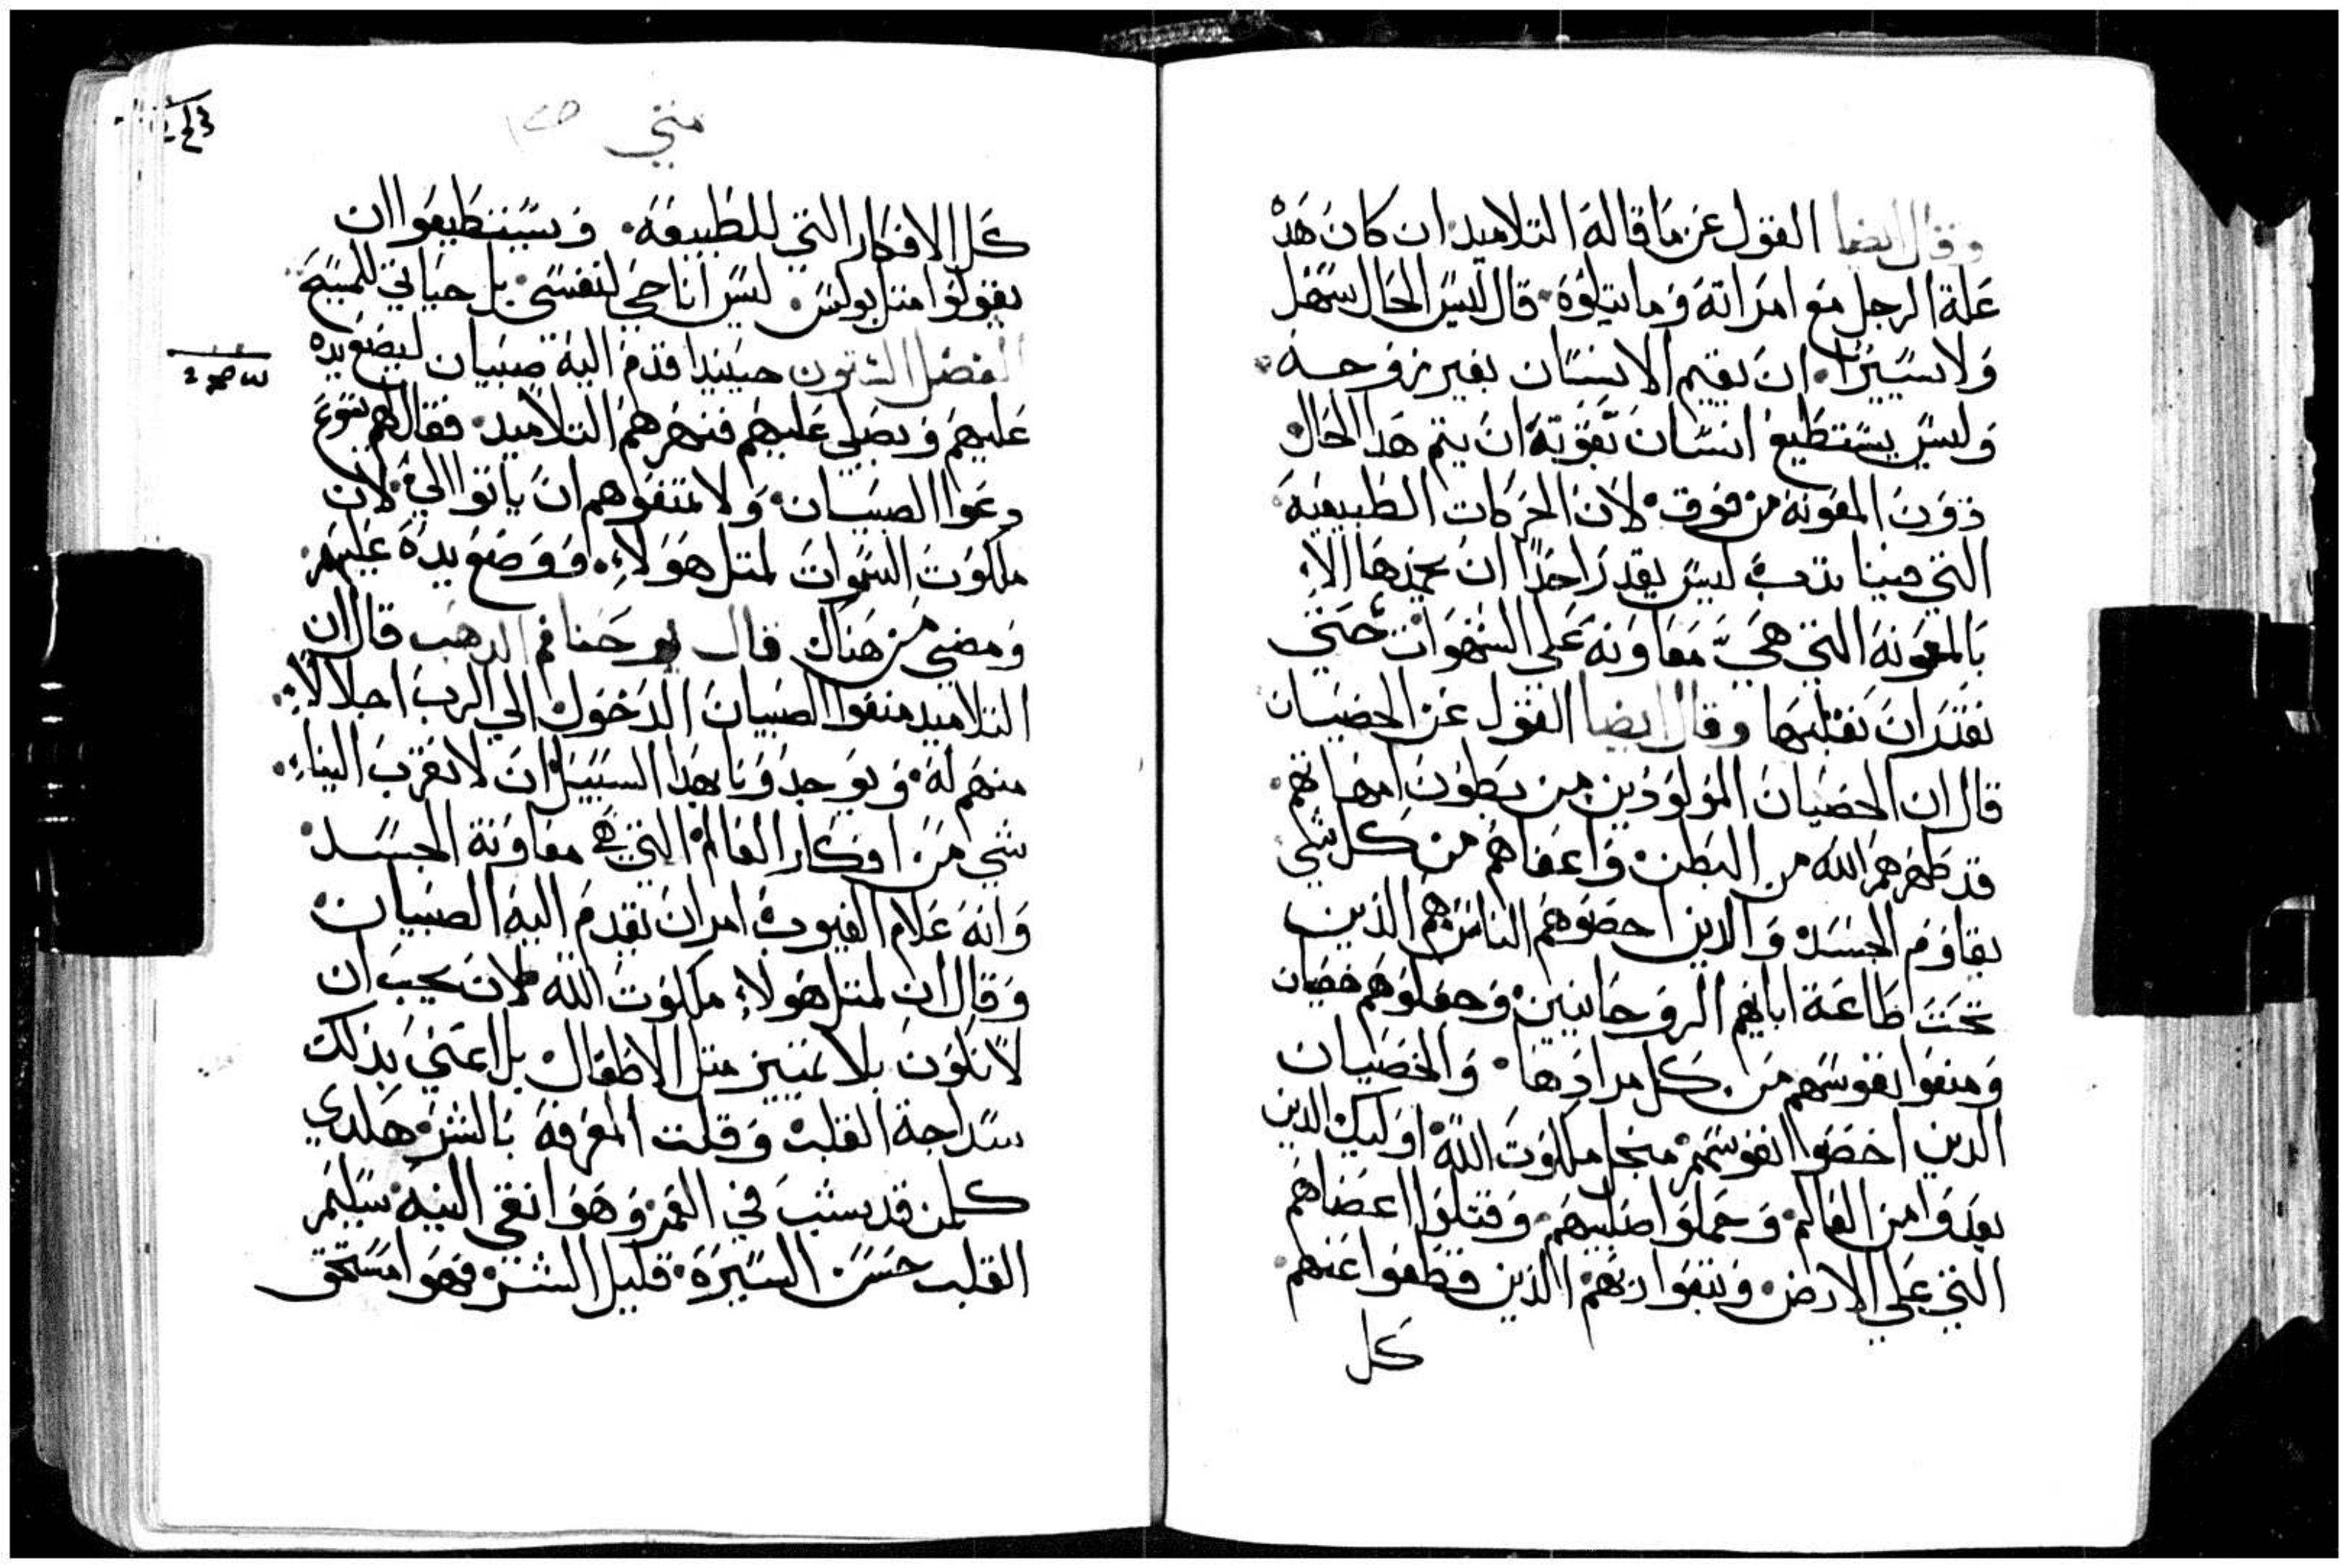 وقال ايضا القول عن ما قاله التلاميد ان كان هده
علة الرجل مع امراته وما يتلوه قال ليس الحال سهل
ولا يسيرا ان يقيم الانسان بغير زوجه
وليس يستطيع انسان بقوته ان يتم هدا الحال
دون المعونه من فوق لان الحركات الطبيعيه
التي فينا ليس يقدر احدا ان يخمدها الا
بالمعونه التي هي معاونه علي الشهوات حتي
نقتدر ان نغلبها وقال ايضا القول عن الخصيان
قال ان الخصيان المولودين من بطون امهاتهم
قد طهرهم الله من البطن واعفاهم من كل شي
يقاوم الجسد والدين اخصوهم الناس هم الذين
تحت طاعة ابايهم الروحانيين وجعلوهم خصيان
ومنعوا نفوسهم من كل مرادها والخصيان
الدين اخصوا نفوسهم منجل ملكوت الله اوليك الدين
بعدوا من العالم وحملوا صليبهم وقتلوا اعضاهم
التي علي الارض وتبعوا ربهم الذين قطعوا عنهم
كل
متي
كل الافكار التي للطبيعه ويستطيعوا ان
يقولوا متل بولس ليس انا حي لنفسي بل حياتي للمسيح
الفصل الستون حينيدا قدم اليه صبيان ليضع يده
عليهم ويصلي عليهم فنهرهم التلاميد فقال لهم يسوع
دعوا الصبيان ولا تمنعوهم ان ياتوا الي لان
ملكوت السموات لمتل هولاء ووضع يده عليهم
ومضي من هناك قال يوحنا فم الدهب قال ان
التلاميد منعوا الصبيان الدخول الي الرب اجلالا
منهم له ويوجدونا بهدا السبيل ان لا نقرب الينا
شي من افكار العالم التي هي معاونة الجسد
وانه علام الغيوب امر ان يقدم اليه الصبيان
وقال ان لمتل هولاء ملكوت الله لان يجب ان
لا نكون بلا تمييز متل الاطفال بل اعني بذلك
سداجة القلب وقلت المعرفه بالشر هكدي
كلمن قد يشب في العمر وهوا نقي النيه سليم
القلب حسن السيره قليل الشر فهوا مستحق